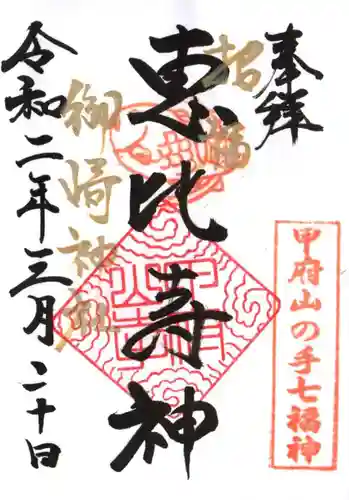 奉拝
招福
恵比寿神
御崎神社
令和二年三月二十日
甲府山の手七福神